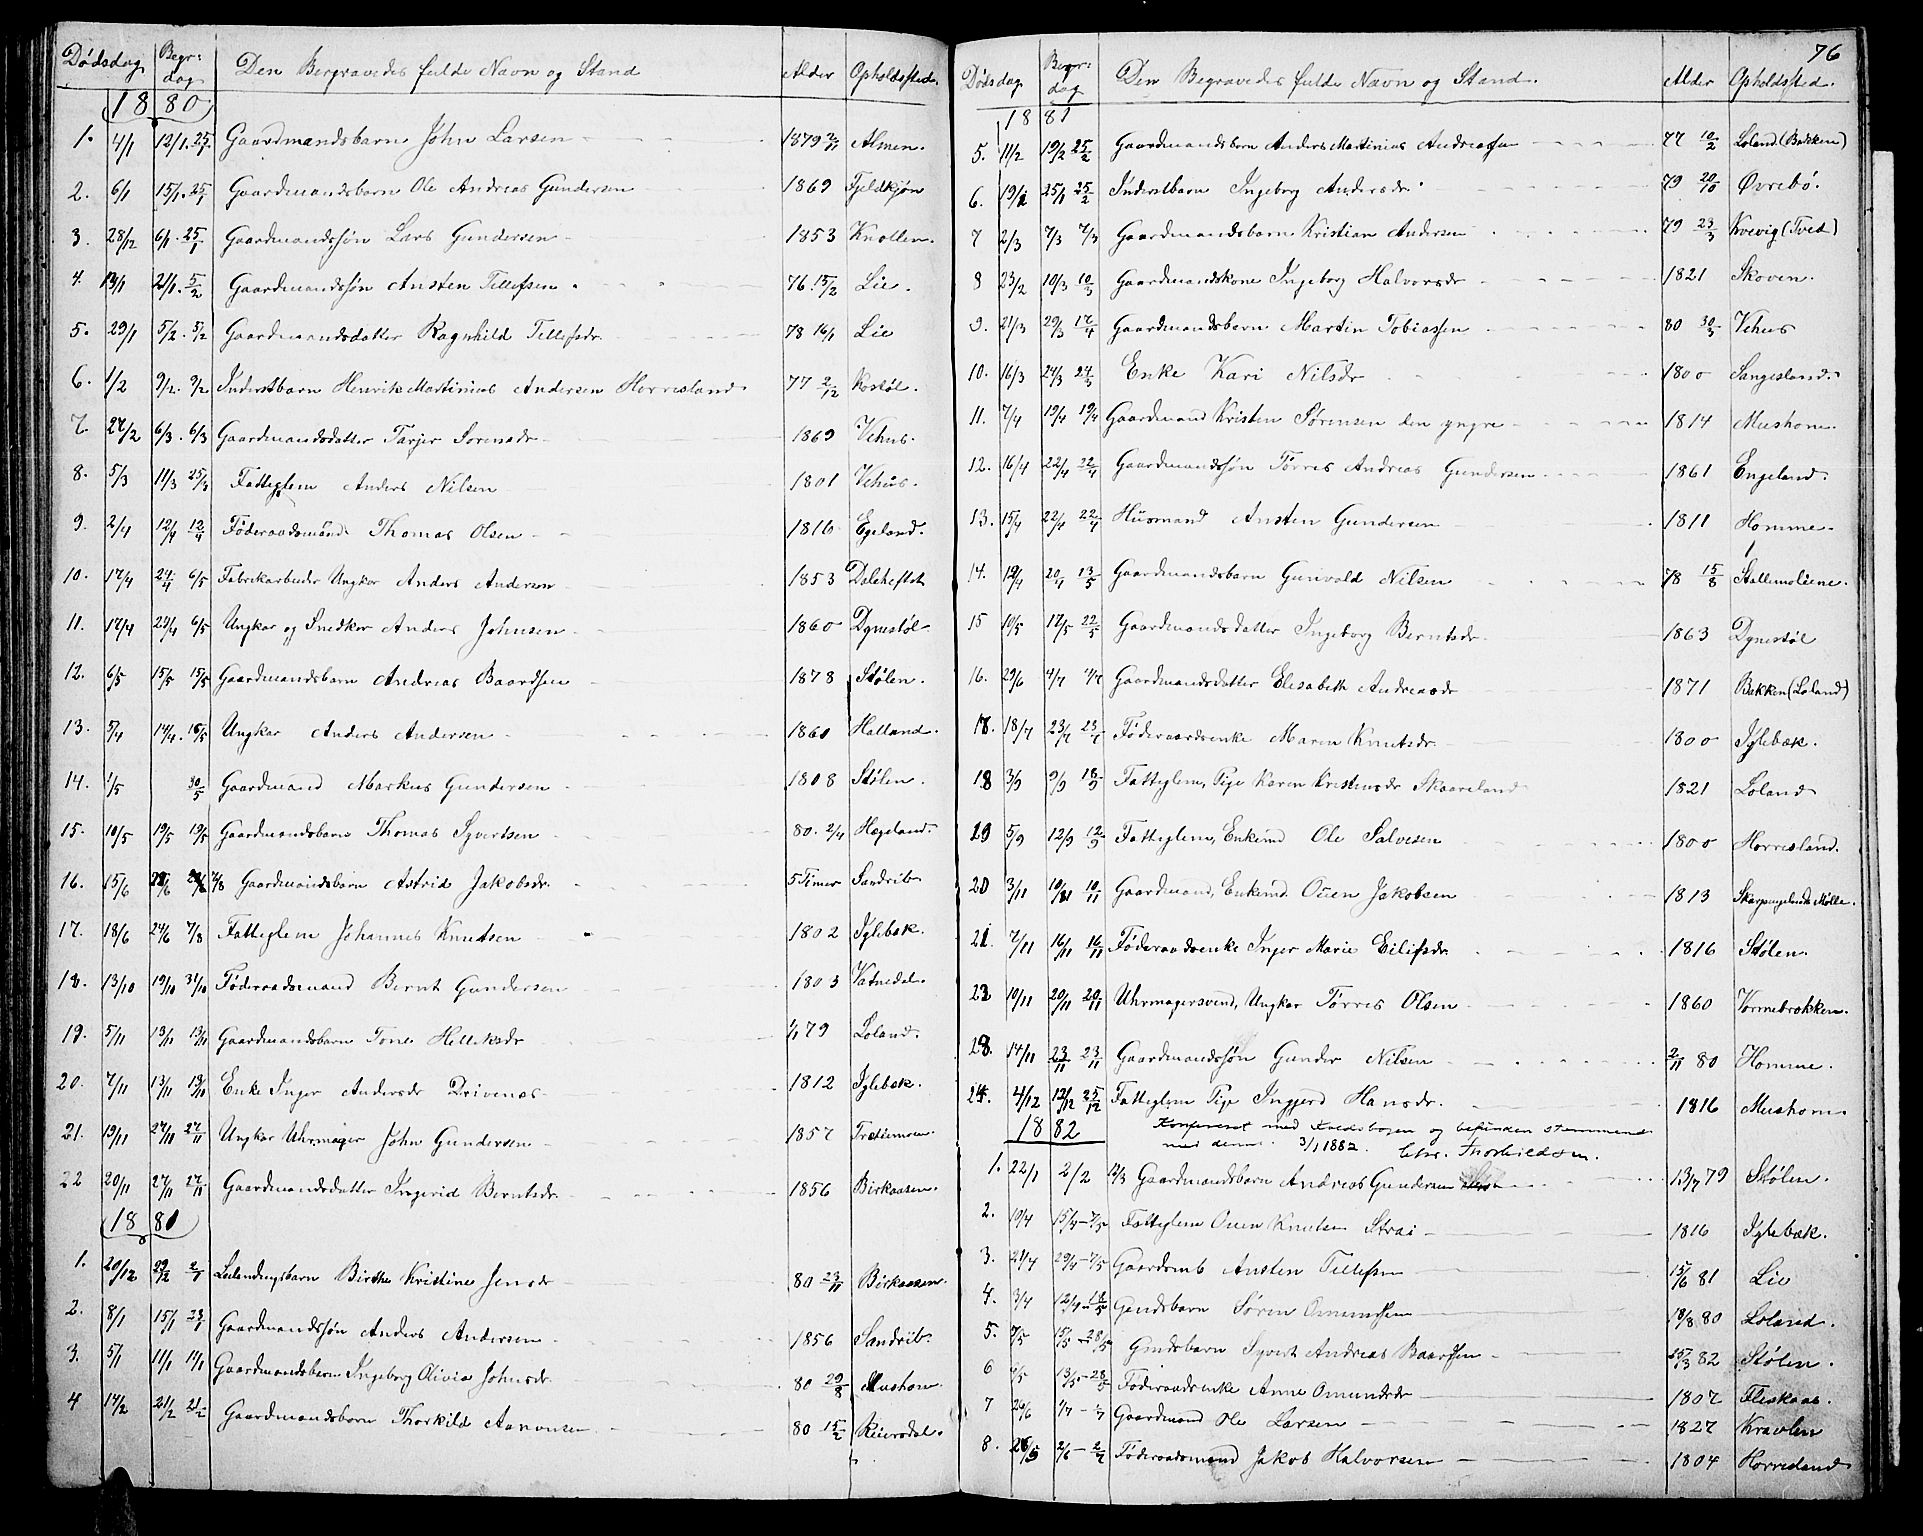 Dødsdag Begr: dag Den Begravedes fulde Navn og Stand Alder Opholdssted.
1880
1. 4/1 12/1. 25/1 Gaardmandsbarn John Larsen 1879 Almen.
2. 6/1 15/1. 25/1 Gaardmandsbarn Ole Andreas Gundersen 1869 Fjeldkjøn
3. 28/12 6/1. 25/1 Gaardmandssøn Lars Gundersen 1853 Knollen.
4. 21/1. 5/2 Gaardmandssøn Austen Tellefsen 76. 15/2 Lie.
5. 29/1 5/2. 5/2 Gaardmandsdatter Ragnhild Tellefsdr. 78 16/1 Lie
6. 1/2 9/2. 9/2 Inderstbarn Henrik Martinius Andersen Horrisland 77 2/12 Kostøl.
7. 27/2 6/3. 6/3 Gaardmandsdatter Tarjer Sørensdr 1869 Vehus.
8. 5/3 11/3 25/3 Fattiglem Anders Nilsen 1801 Vehus.
9. 2/4 12/4 12/4 Føderaadsmand Thomas Olsen 1816 Egeland.
10. 17/4 24/4 6/5 Fabrikarbeider Ungkar Anders Andersen 1853
11. 17/4 24/4 6/5 Ungkar og Snedker Anders Johnsen 1860 Dynestøl
12. 6/5 15/5 15/5 Gaardmandsbarn Andreas Baardsen 1878 Stølen.
13. 5/4 14/4. 16/5 Ungkar Anders Andersen 1860 Halland.
14. 1/5 30/5 Gaardmand Markus Gundersen 1808 Stølen.
15. 10/5 19/5 19/5 Gaardmandsbarn Thomas Syvertsen 80. 2/4 Hægeland.
16. 15/6 Gaardmandsbarn Astrid Jakobsdr. 5 Timer Sandrib
17. 18/6 24/6 7/8 Fattiglem Johannes Knutsen 1802 Iglebæk.
18. 13/10 19/10 31/10 Føderaadsmand Bernt Gundersen 1803 Vatnedal.
19. 5/11 13/11 13/11 Gaardmandsbarn Tone Helleksdr 79 Loland.
20. 7/11 13/11 13/11 Enke Inger Andersdr Drivenes 1812 Iglebæk.
21. 19/11 27/11 27/11 Ungkar Uhrmager John Gundersen 1857
22 20/11 27/11 27/11 Gaardmandsdatter Ingerid Berntsdr. 1856 Birkaasen.
1881
1. 20/12 Leilendingsbarn Birthe Kristine Jensdr 80 23/11 Birkaasen.
2. 8/1 15/1 23/1 Gaardmandssøn Anders Andersen 1856 Sandrib.
3. 5/1 11/1 11/1 Gaardmandsbarn Ingeborg Olivia Johnsdr. 80 29/8 Mushom
4 14/2 21/2 21/2 Gaardmandsbarn Thorkild Aanonsen 80 15/2 Reiersdal.
76
Dødsdag Begr: dag Den Begravedes fulde Navn og Stand. Alder Opholdssted.
1881
5. 11/2 19/2 25/2 Gaardmandsbarn Anders Martinius Andreassen 77 10/2 Loland (Bakken)
6. 25/1 25/2 Inderstbarn Ingeborg Andersdr. 79 20/10 Øvrebø.
7 2/3 7/3 7/3 Gaardmandsbarn Kristian Andersen 79 23/3 Kvevig (Tved)
8 23/2 10/3 10/3 Gaardmandskone Ingeborg Halvorsdr 1821 Skoven.
9. 21/3 29/3 17/4 Gaardmandsbarn Martin Tobiassen 80 30/3 Vehus
10. 16/3 24/3 24/3 Enke Kari Nilsdr 1800 Sangesland.
11. 7/4 19/4 19/4 Gaardmand Kristen Sørensen den yngre 1814 Mushom.
12. 16/4 22/4 22/4 Gaardmandssøn Tørres Andreas Gundersen 1861 Engeland.
13. 15/4 22/4 22/4 Husmand Austen Gundersen 1811 Homme.
14. 12/4 20/4 13/5 Gaardmandsbarn Gunvald Nilsen 78 15/8 Stallemoliene.
15 10/5 17/5 22/5 Gaardmandsdatter Ingeborg Berntsdr. 1863 Dynestøl
16. 29/6 4/7 4/7 Gaardmandsdatter Elisabeth Andreasdr 1871 Bakken (Loland)
17. 18/7 23/7 23/7 Føderaadsenke Maren Knutsdr. 1800 Iglebæk.
18 3/9 9/9 18/9 Fattiglem, Pige Karen Kristensdr Skaareland 1821 Loland
19 5/9 12/9 12/9 Fattiglem, Enkemd Ole Salvesen 1800 Horrisland.
20 3/11 10/11 10/11 Gaardmand, Enkemd. Ouen Jakobsen 1813 Skarpengelands Mølle.
21. 7/11 16/11 16/11 Føderaadsenke Inger Marie Eilifsdr. 1816 Stølen.
22 10/11 20/11 20/11 Uhrmagersvend, Ungkar Tørres Olsen 1860 Vormebrokken.
23. 14/11 23/11 23/11 Gaardmandssøn Gunder Nilsen 2/11 80 Homme.
24. 4/12 12/12 25/12 Fattiglem Pige Ingjerd Hansdr. 1816 Mushom.
1882 Konfereret med Kirkebogen og befunden stemmende
med denne. 3/1 1882. Chr. Thorkildsen.
1. 22/1 2/2 12/3 Gaardmandsbarn Andreas Gundersen 13/7 79 Stølen.
2. 19/4 15/4 - 7/5 Fattiglem Ouen Knutsen Strai 1816 Iglebæk.
3. 21/4 29/4 - 7/5 Gaardmb Austen Tellefsen 15/6 81 Lie
4. 3/4 12/4 - 18/5 Gmdsbarn Søren Omundsen 18/8 80 Loland.
5. 7/5 15/5 - 28/5 Gmdsbarn Syvert Andreas Baardsen 82 Stølen.
6 13/5 - 28/5 Føderaadsenke Anne Omundsdr 1807 Fleskaas.
7 1/7 - 1/7 Gaardmand Ole Larsen 1827 Kravlen
8. 2/6 - 2/7 Føderaadsmand Jakob Halvorsen 1804 Horrisland